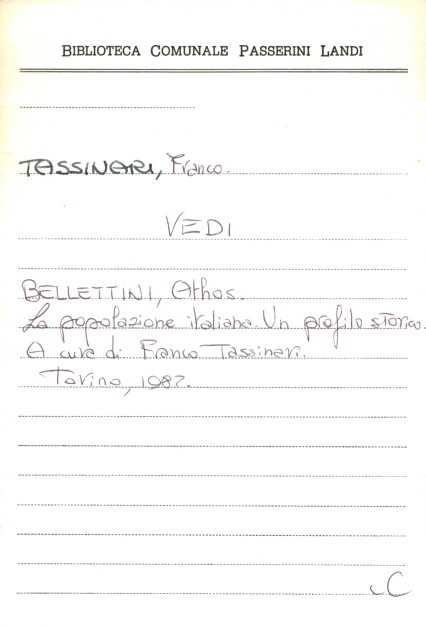 BIBLIOTECA COMUNALE PASSERINI LANDI
TASSINARI, Franco.
VEDI
BELLETTINI, Athos.
La popolazione italiana. Un profilo storico.
A cura di Franco Tassinari.
Torino, 1987.
C